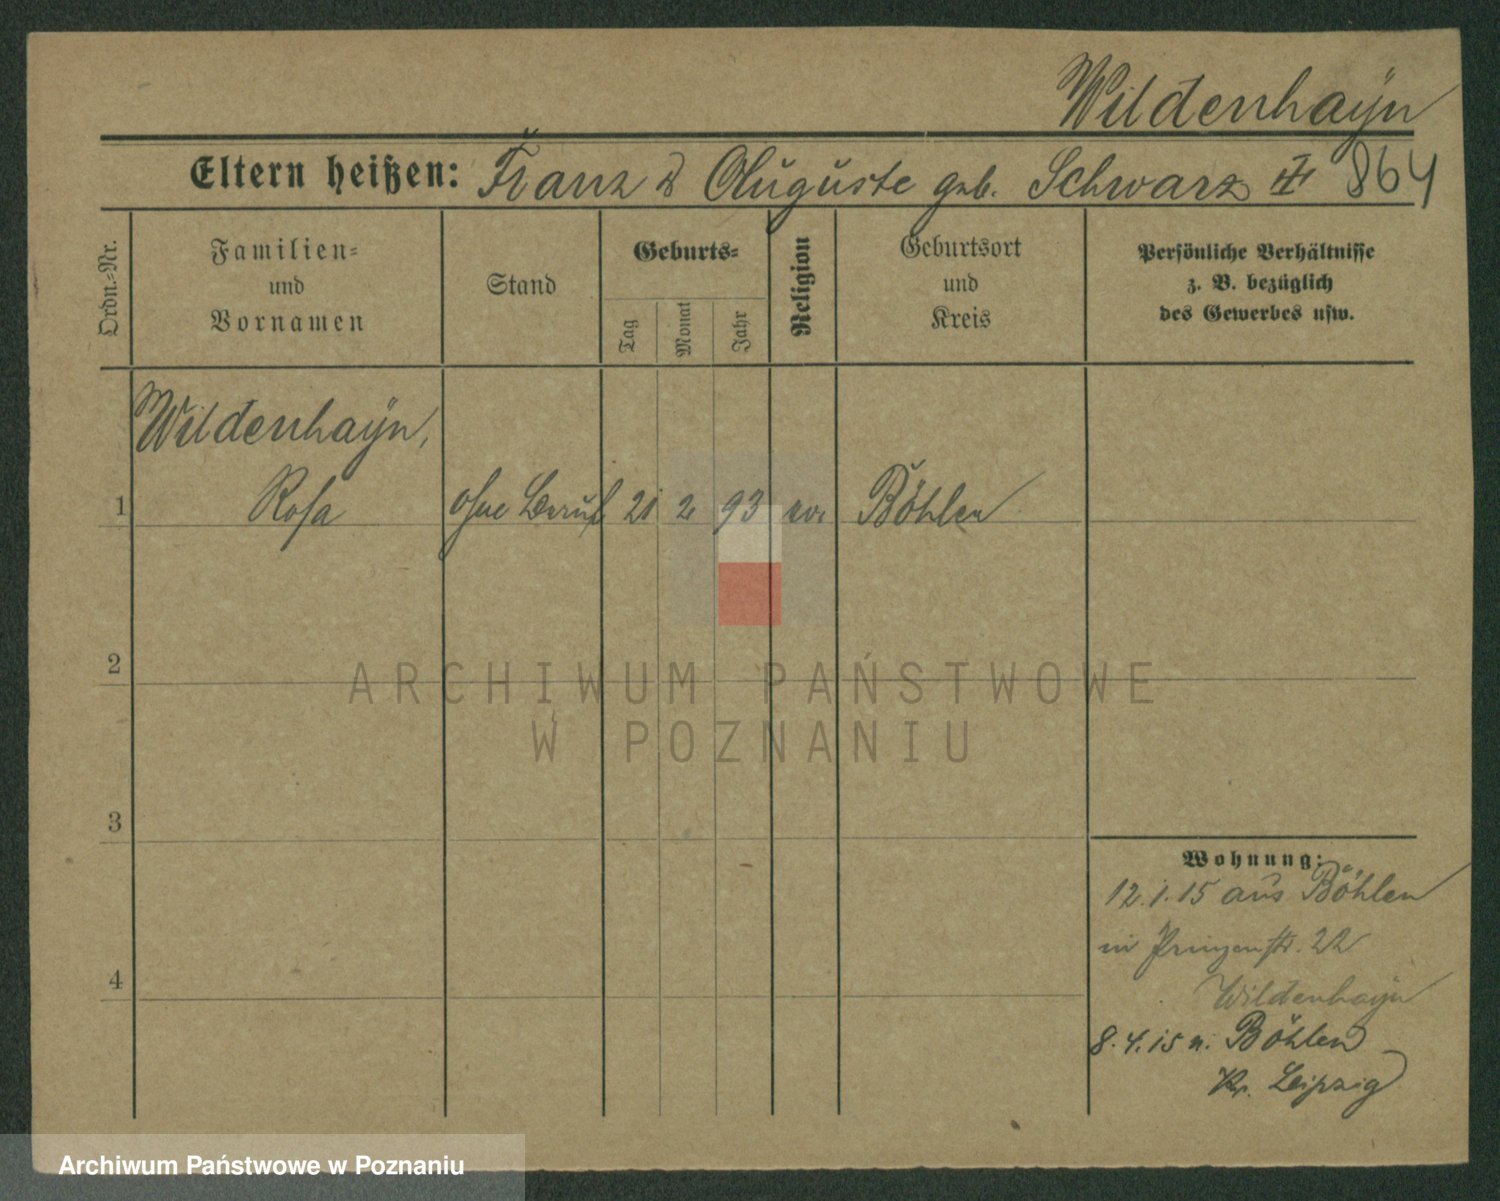 Wildenhaÿn
Eltern heißen: Franz & Auguste geb. Schwarz 864
Ordn.-Nr.
Familien-
und
Vornamen
Stand
Geburts-
Tag
Monat
Jahr
Religion
Geburtsort
und
Kreis
Persönliche Verhältnisse
z. B. bezüglich
des Gewerbes usw.
Wildenhaÿn,
1 Rosa ohne Beruf 21 2 93 ev. Böhlen
2
3
4
Wohnung:
12.1.15 aus Böhlen
in Prinzenstr. 22
Wildenhayn
8.4.15 n. Böhlen
Kr. Leipzig
ARCHIWUM PAŃSTWOWE
W POZNANIU
Archiwum Państwowe w Poznaniu